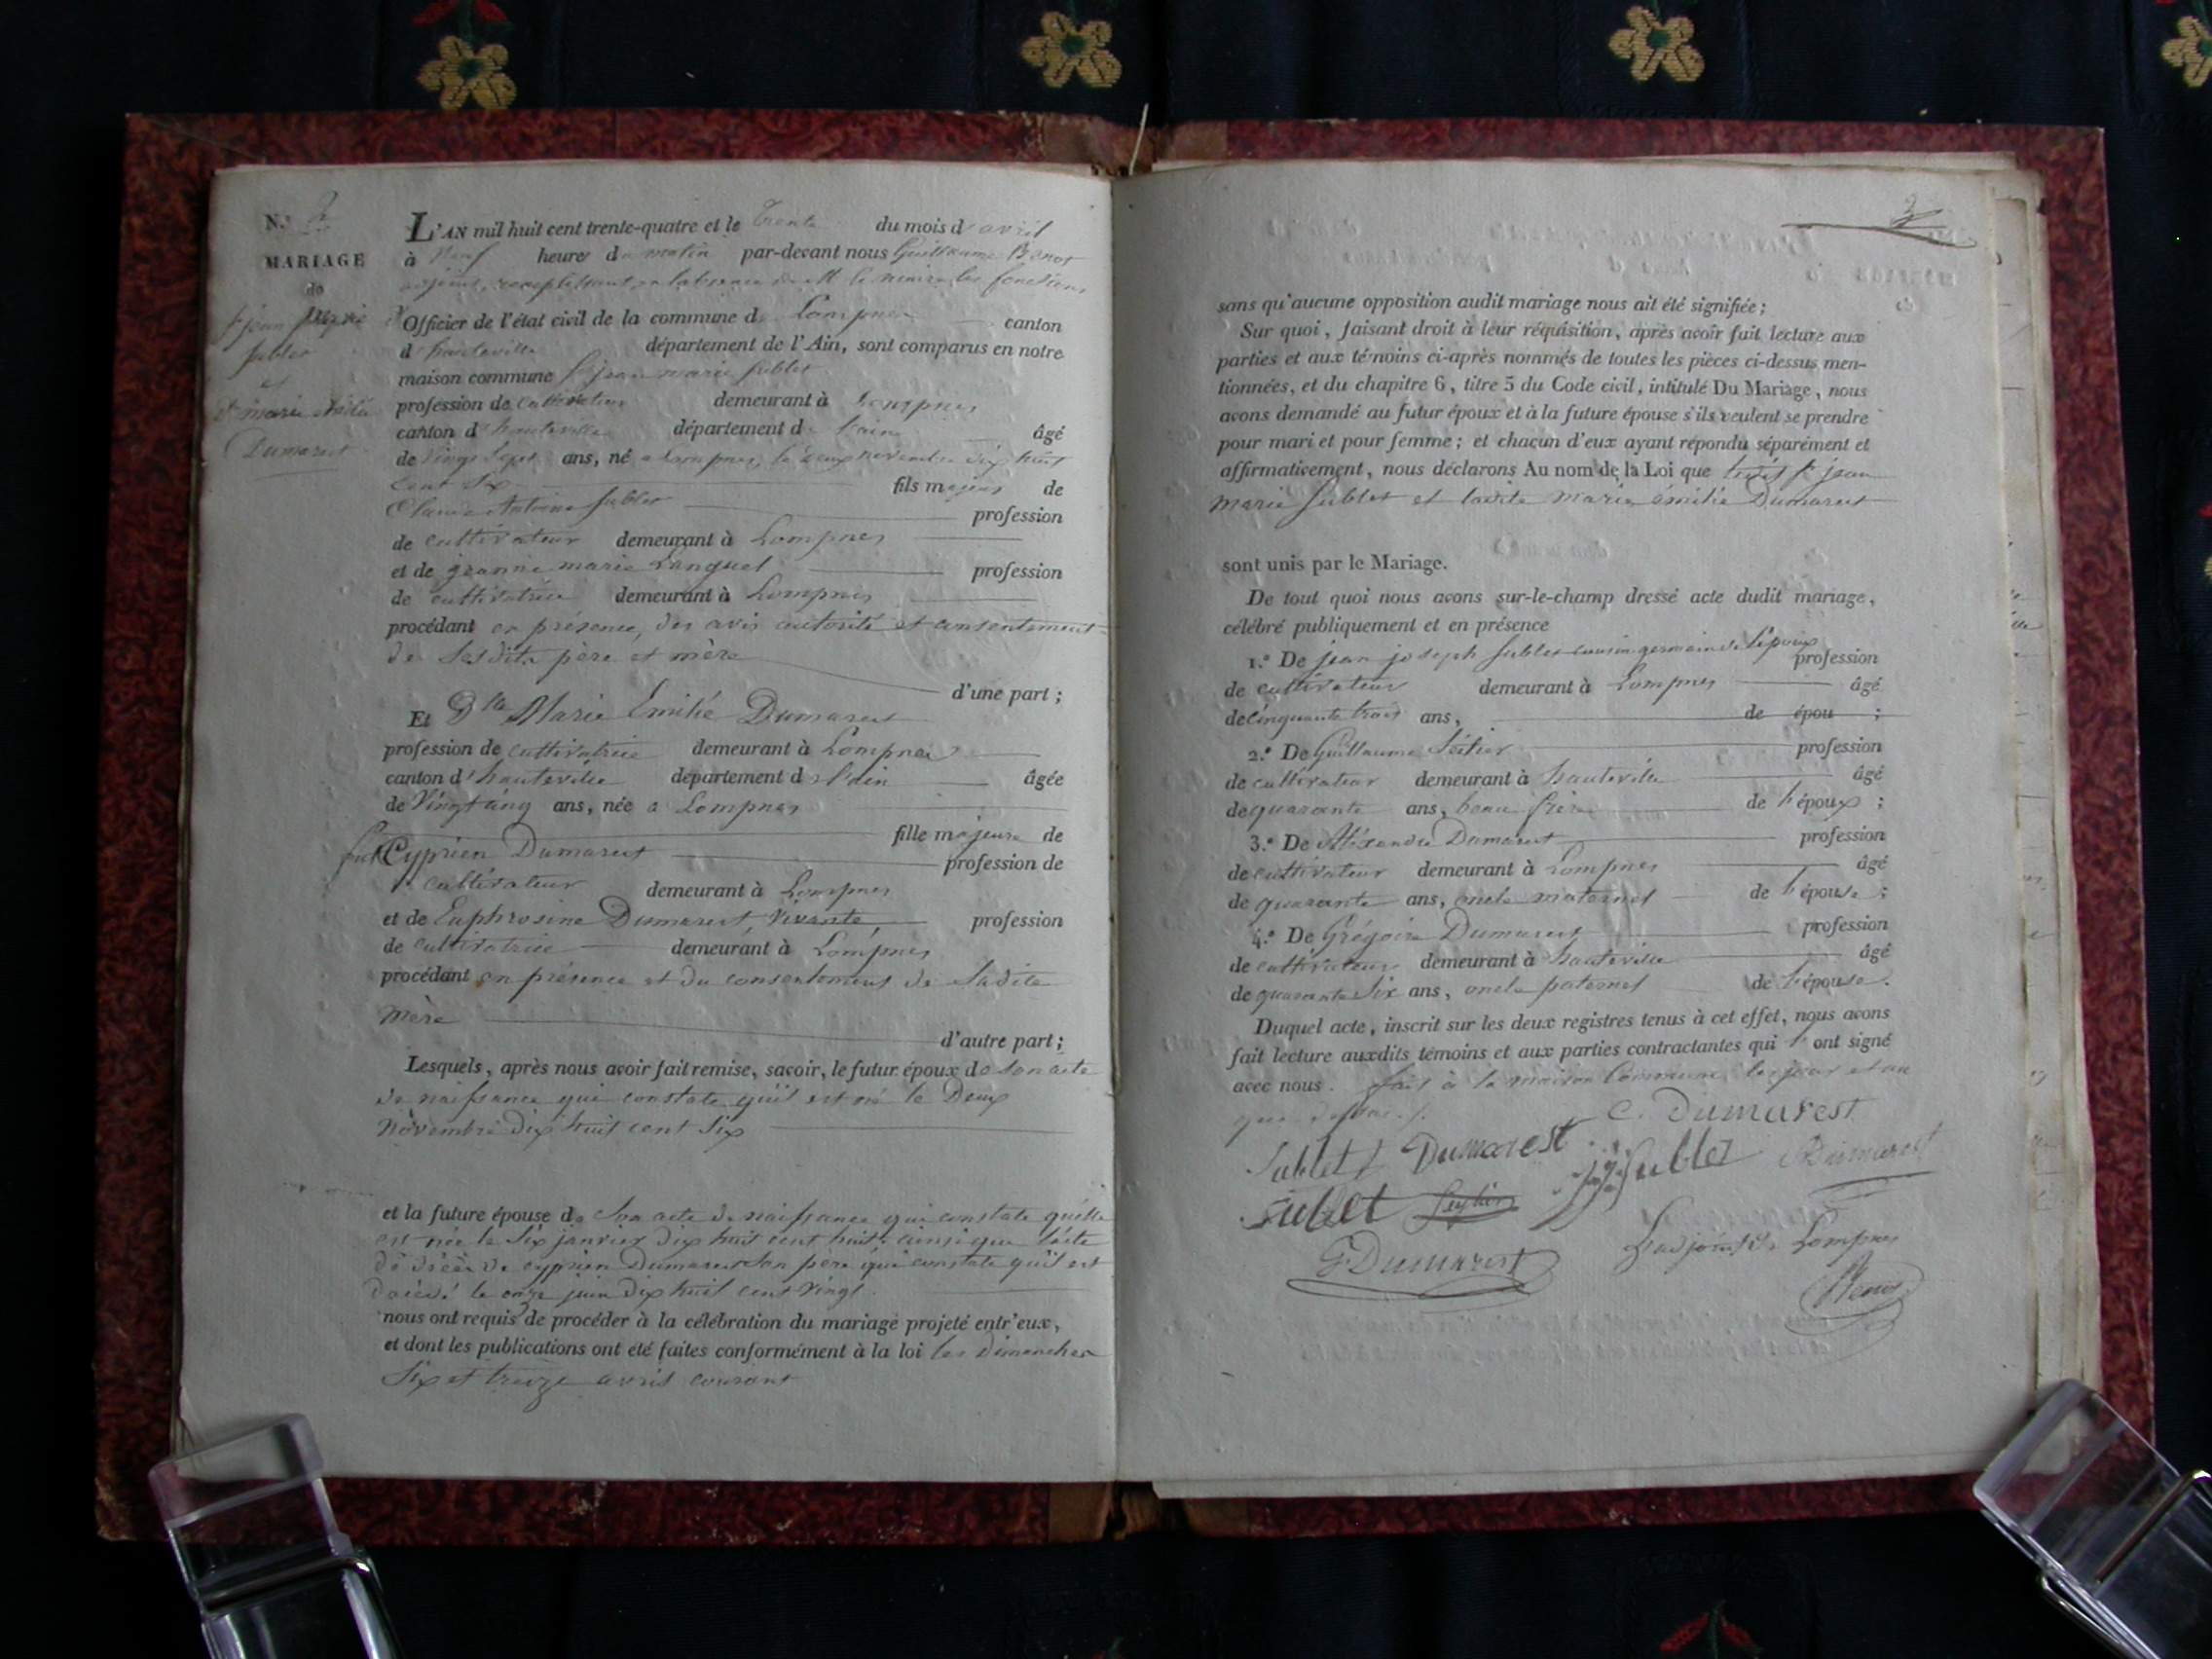 N.° 2
MARIAGE
de
Sr jean marie
Sublet
et
Dlle marie émilie
Dumarest
L'AN mil huit cent trente-quatre et le trente du mois d'avril
à neuf heures du matin par-devant nous Guillaume Benot
adjoint, remplissant en l'absence de M. le maire les fonctions
d'Officier de l'état civil de la commune de Lompnes canton
d'hauteville département de l'Ain, sont comparus en notre
maison commune Sr jean marie Sublet
profession de cultivateur demeurant à Lompnes
canton d'hauteville département de l'ain âgé
de vingt sept ans, né a Lompnes, le deux novembre dix huit
cent six fils majeur de
Claude Antoine Sublet profession
de cultivateur demeurant à Lompnes
et de jeanne marie Languet profession
de cultivatrice demeurant à Lompnes
procédant en présence, des avis autorité et consentement
de sesdits père et mère
d'une part ;
Et Dlle Marie Emilié Dumarest
profession de cultivatrice demeurant à Lompnes
canton d'hauteville département de l'ain âgée
de Vingt cinq ans, née a Lompnes
fille majeure de
feu Cyprien Dumarest profession de
cultivateur demeurant à Lompnes
et de Euphrosine Dumarest, vivante profession
de cultivatrice demeurant à Lompnes
procédant en présence et du consentement de Sadite
mère
d'autre part ;
Lesquels, après nous avoir fait remise, savoir, le futur époux de son acte
de naissance qui constate qu'il est né le Deux
Novembre dix huit cent Six
et la future épouse de Son acte de naissance qui constate qu'elle
est née le Six janvier dix huit cent huit, ainsi que l'acte
de décès de cyprien Dumarest son père qui constate qu'il est
décédé le onze juin dix huit cent vingt
nous ont requis de procéder à la célébration du mariage projeté entr'eux,
et dont les publications ont été faites conformément à la loi les dimanches
Six et treize avril courant
2
sans qu'aucune opposition audit mariage nous ait été signifiée ;
Sur quoi, faisant droit à leur réquisition, après avoir fait lecture aux
parties et aux témoins ci-après nommés de toutes les pièces ci-dessus men-
tionnées, et du chapitre 6, titre 5 du Code civil, intitulé Du Mariage, nous
avons demandé au futur époux et à la future épouse s'ils veulent se prendre
pour mari et pour femme ; et chacun d'eux ayant répondu séparément et
affirmativement, nous déclarons Au nom de la Loi que ledit Sr jean
marie Sublet et ladite marie émilie Dumarest
sont unis par le Mariage.
De tout quoi nous avons sur-le-champ dressé acte dudit mariage,
célébré publiquement et en présence
1.° De jean joseph Sublet cousin germain de l'époux profession
de cultivateur demeurant à Lompnes âgé
de cinquante trois ans, de épou ;
2.° De Guillaume profession
de cultivateur demeurant à hauteville âgé
de quarante ans, beau frère de l'époux ;
3.° De Aléxandre Dumarest profession
de cultivateur demeurant à Lompnes âgé
de quarante ans, oncle maternel de l'épouse ;
4.° De Grégoire Dumarest profession
de cultivateur demeurant à hauteville âgé
de quarante six ans, oncle paternel de l'épouse.
Duquel acte, inscrit sur les deux registres tenus à cet effet, nous avons
fait lecture auxdits témoins et aux parties contractantes qui l'ont signé
avec nous. fait à la maison Commune, les jour et an
que dessus.
C. Dumarest
Sublet Dumarest jj Sublet Dumarest
Sublet
G. Dumarest
L'adjoint de Lompnes
Benot